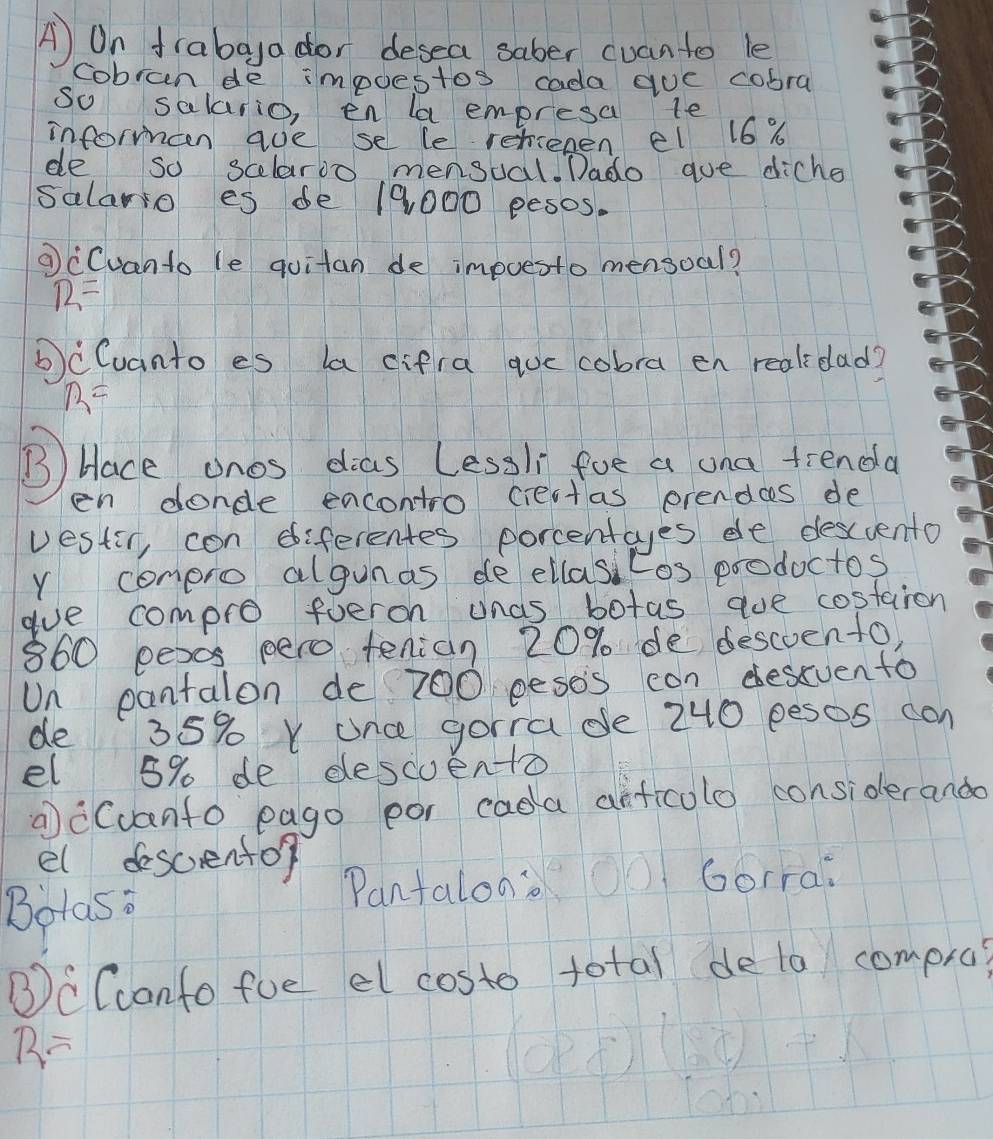 A) Un trabajador desea saber cuanto le
cobran de impuestos cada que cobra
su salario, en la empresa le
informan que se le retienen el 16%
de su salario mensual. Dado que dicho
Salario es de 19,000 pesos.
a) ¿Cuanto le quitan de impuesto mensual?
R=
b) ¿Cuanto es la cifra que cobra en realidad?
R=
B) Hace unos dias Lessli fue a una tienda
en donde encontro ciertas prendas de
vestir, con diferentes porcentajes de descuento
y compro algunas de ellas. Los productos
que compro fueron unas botas que costaron
860 pesos pero tenian 20% de descuento,
Un pantalon de 700 pesos con descuento
de 35% y una gorra de 240 pesos con
el 5% de descuento
a) ¿Cuanto pago por cada articulo considerando
el descuento?
Botas: Pantalon: Gorra:
B) ¿Cuanto fue el costo total de la compra?
R=